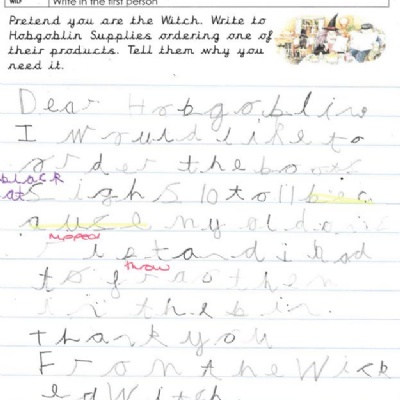 Write in the first person
Pretend you are the Witch. Write to
Hobgoblin Supplies ordering one of
their products. Tell them why you
need it.
Dear Hobgoblin
I would like to
order the boots
black
at sighs 10 to 11 bec
ause my old
ripped
and i had
throw
to them
in the bin.
thank you
From the Wick
ed Witch.